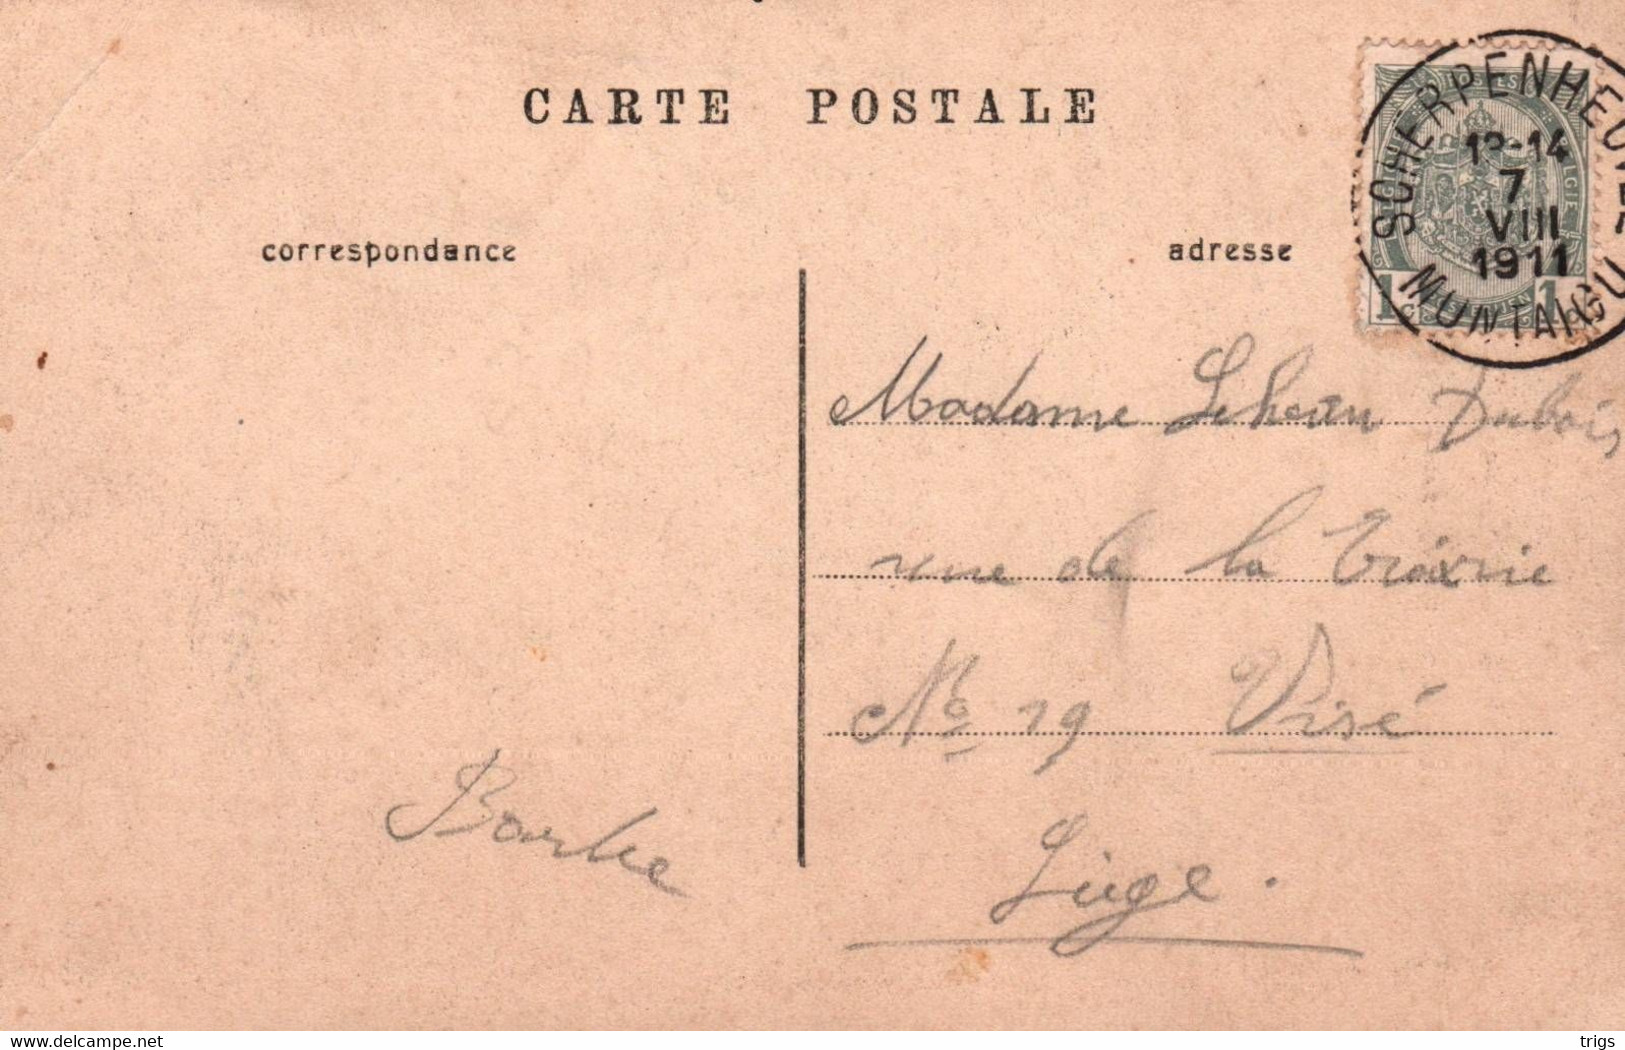 CARTE POSTALE
correspondance
adresse
SCHERPENHEUVEL
-14
7
VIII
1911
MONTAIGU
1 1
Madame Dubois
rue de la
No 19 Visé
Liége.
Barbe
www.delcampe.net
trigs